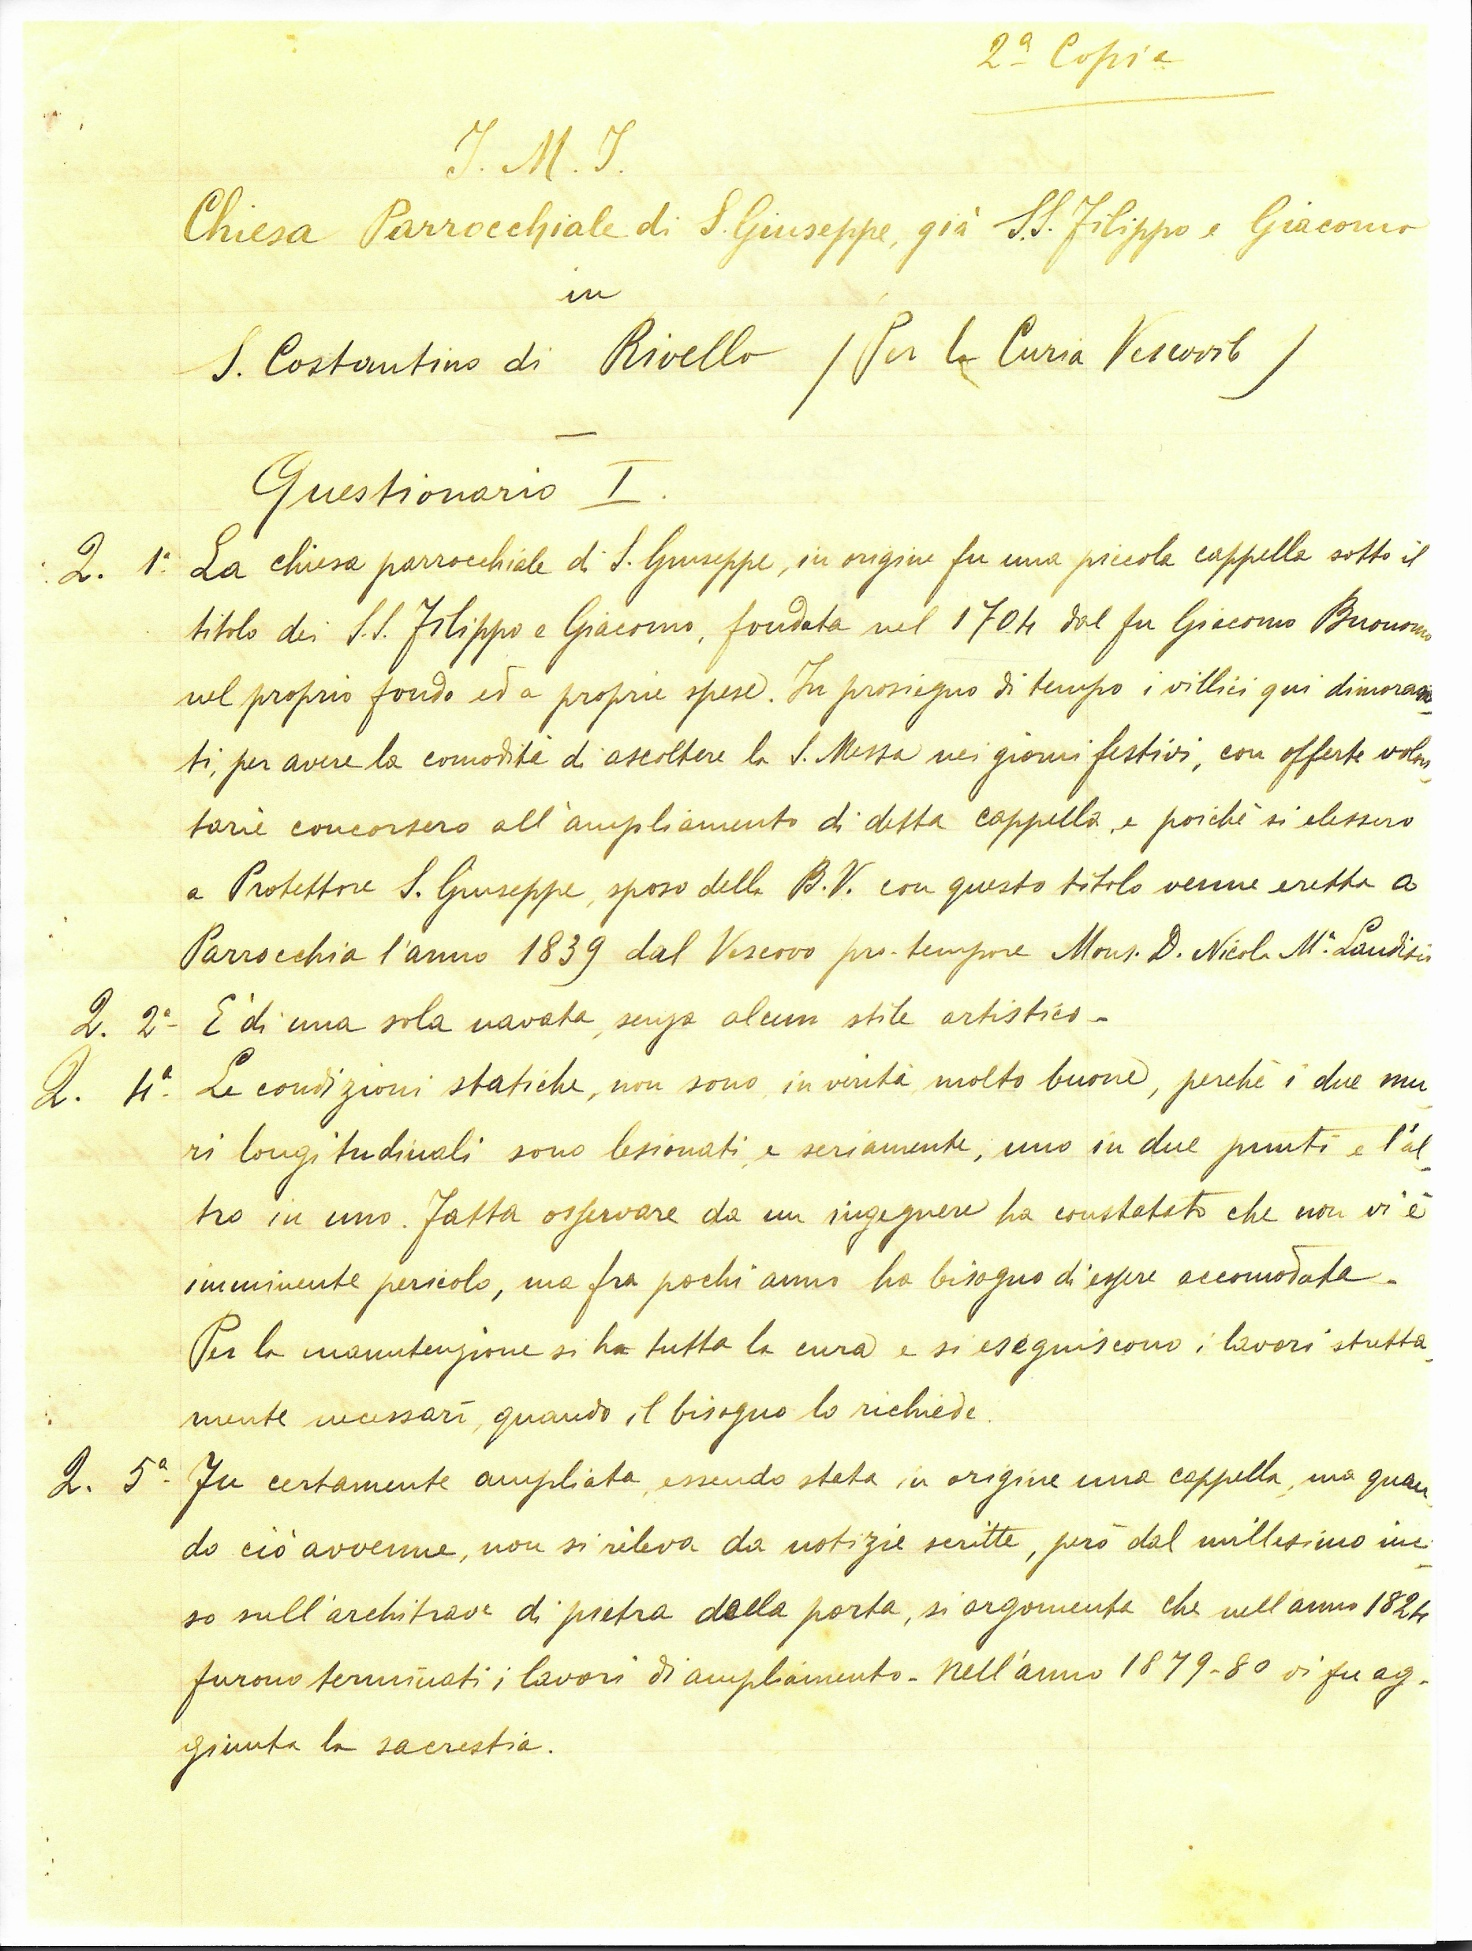 2ª Copia
J. M. J.
Chiesa Parrocchiale di S. Giuseppe, già S.S. Filippo e Giacomo
in
S. Costantino di Rivello (Per la Curia Vescovile)
Questionario I.
Q. 1ª La chiesa parrocchiale di S. Giuseppe, in origine fu una piccola cappella sotto il
titolo dei S.S. Filippo e Giacomo, fondata nel 1704 dal fu Giacomo Buonomo
nel proprio fondo ed a proprie spese. In prosieguo di tempo i villici qui dimoran-
ti, per avere la comodità di ascoltare la S. Messa nei giorni festivi, con offerte volon-
tarie concorsero all'ampliamento di detta cappella, e poichè si elessero
a Protettore S. Giuseppe, sposo della B.V. con questo titolo venne eretta a
Parrocchia l'anno 1839 dal Vescovo pro-tempore Mons. D. Nicola Mª Laudisio
Q. 2ª- È di una sola navata, senza alcun stile artistico-
Q. 4ª- Le condizioni statiche, non sono, in verità, molto buone, perchè i due mu-
ri longitudinali sono lesionati, e seriamente, uno in due punti e l'al-
tro in uno. Fatta osservare da un ingegnere ha constatato che non vi è
imminente pericolo, ma fra pochi anni ha bisogno di essere accomodata-
Per la manutenzione si ha tutta la cura e si eseguiscono i lavori stretta-
mente necessari, quando il bisogno lo richiede.
Q. 5ª- Fu certamente ampliata, essendo stata in origine una cappella, ma quan-
do ciò avvenne, non si rileva da notizie scritte, però dal millesimo inci-
so sull'architrave di pietra della porta, si argomenta che nell'anno 1824
furono terminati i lavori di ampliamento- Nell'anno 1879-80 vi fu ag-
giunta la sacrestia.